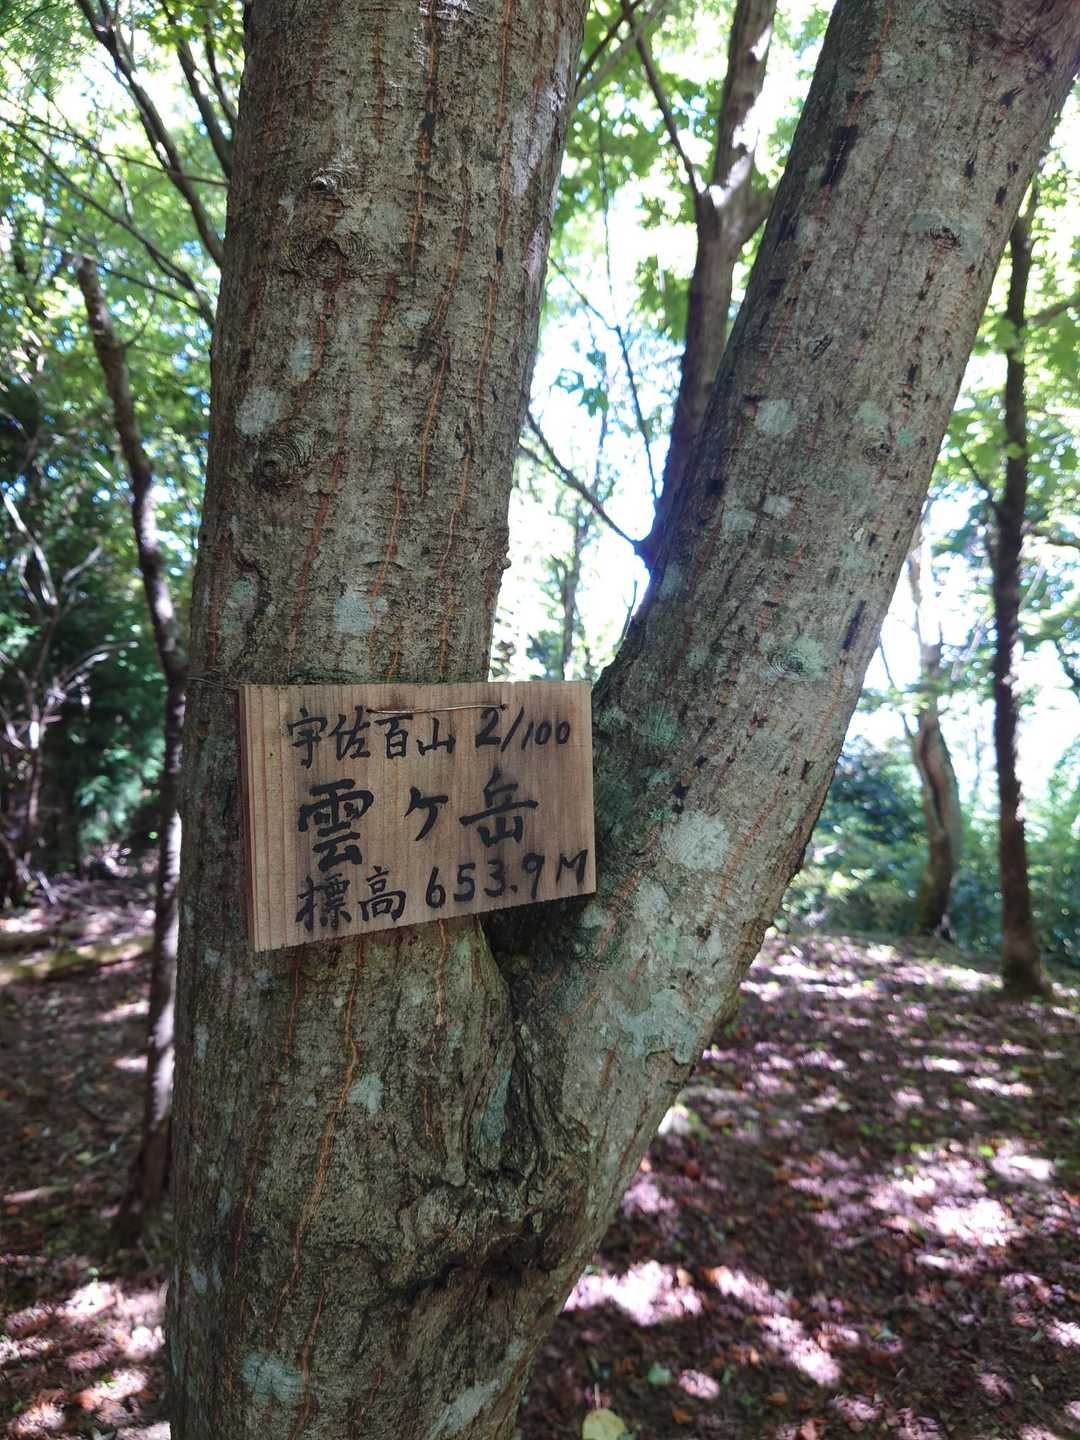 宇佐百山 2/100
雲ヶ岳
標高 653.9M